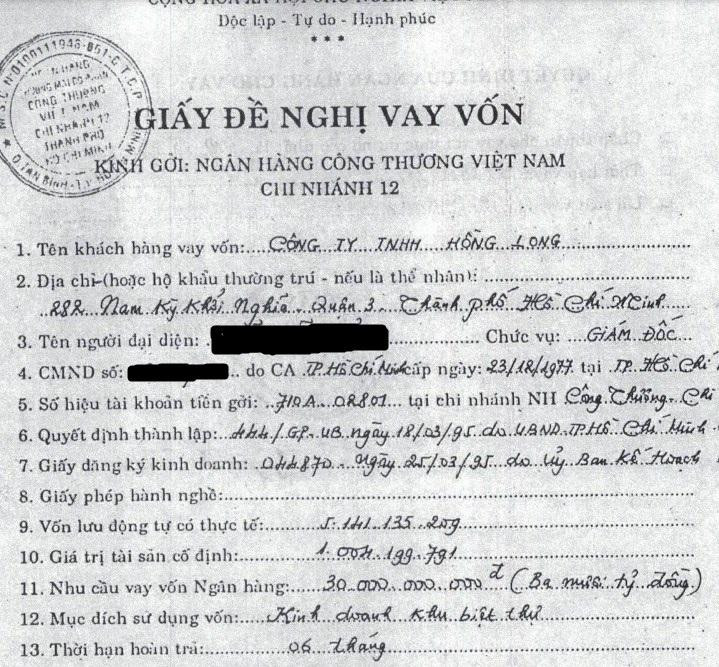 CỘNG HÒA XÃ HỘI CHỦ NGHĨA VIỆT NAM
Độc lập - Tự do - Hạnh phúc
* * *
M.S.C.N:0100111948-851-C.T.C.P
NGÂN HÀNG
CÔNG THƯƠNG
VIỆT NAM
CHI NHÁNH 12
THÀNH PHỐ
HỒ CHÍ MINH
Q.TÂN BÌNH-T.P
GIẤY ĐỀ NGHỊ VAY VỐN
KÍNH GỞI: NGÂN HÀNG CÔNG THƯƠNG VIỆT NAM
CHI NHÁNH 12
1. Tên khách hàng vay vốn: CÔNG TY TNHH HỒNG LONG
2. Địa chỉ (hoặc hộ khẩu thường trú - nếu là thể nhân):
282 Nam Kỳ Khởi Nghĩa Quận 3 Thành phố Hồ Chí Minh
3. Tên người đại diện: Chức vụ: GIÁM ĐỐC
4. CMND số: do CA TP.Hồ Chí Minh cấp ngày: 23/12/1977 tại TP. Hồ Chí
5. Số hiệu tài khoản tiền gởi: 710A.02801 tại chi nhánh NH Công Thương. Chi
6. Quyết định thành lập: 444/GP.UB ngày 18/03/95 do UBND TP Hồ Chí Minh
7. Giấy đăng ký kinh doanh: 044870. Ngày 25/03/95 do Ủy Ban Kế Hoạch
8. Giấy phép hành nghề:
9. Vốn lưu động tự có thực tế: 5.141.135.209
10. Giá trị tài sản cố định: 1.004.199.791
11. Nhu cầu vay vốn Ngân hàng: 30.000.000.000đ (Ba mươi tỷ đồng)
12. Mục đích sử dụng vốn: Kinh doanh khu biệt thự
13. Thời hạn hoàn trả: 06 tháng